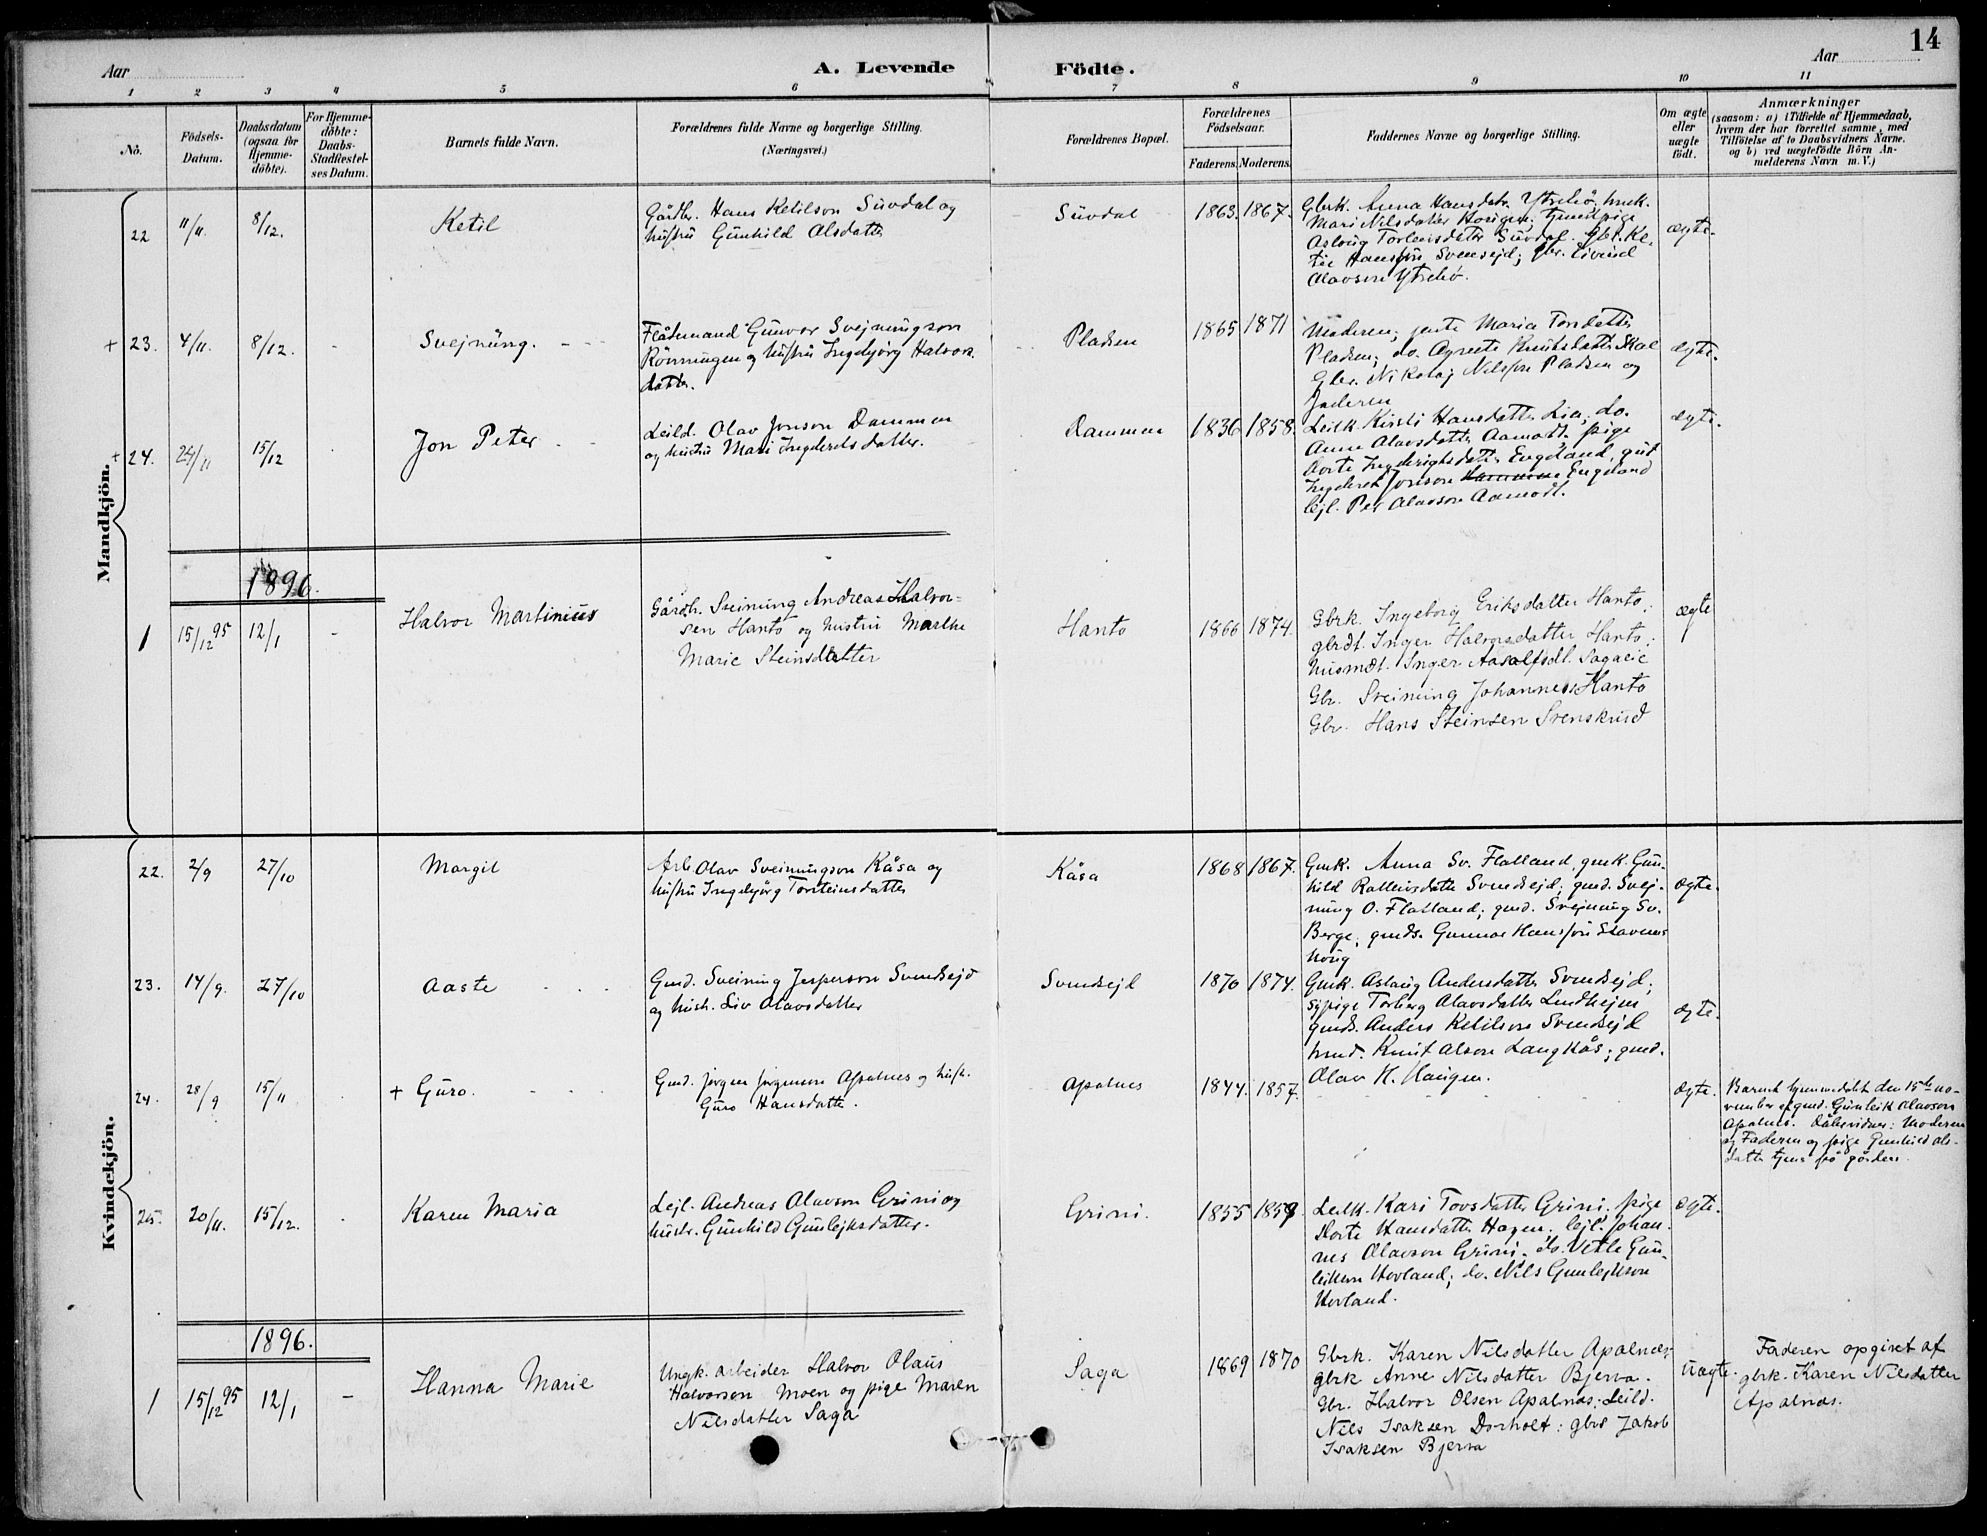 14
Aar
A. Levende Födte.
Aar
1 2 3 4 5 6 7 8 9 10 11
No.
Födsels-Datum.
Daabsdatum (ogsaa for Hjemme-döbte).
For Hjemme-döbte: Daabs-Stadfæstel-ses Datum.
Barnets fulde Navn.
Forældrenes fulde Navne og borgerlige Stilling.
(Næringsvei.)
Forældrenes Bopæl.
Forældrenes Födselsaar.
Faderens. Moderens.
Faddernes Navne og borgerlige Stilling.
Om ægte eller uægte födt.
Anmærkninger
(saasom: a) i Tilfælde af Hjemmedaab,
hvem der har forrettet samme, med
Tilföielse af to Daabsvidners Navne.
og b) ved uægtefödte Börn An-
melderens Navn m. V.)
Mandkjön.
22 11/11. 8/12. Ketil
Gårdbr. Hans Ketilson Suvdal og
hustru Gunhild Alsdatter
Suvdal 1863. 1867.
Gbrk. Anna Hansdatr. Ytrebö, husk.
Mari Nilsdatter Haugen, tjenestpige
Aslaug Torleivsdatter Suvdal. Gbr. Ke-
til Hansson Svensejd; gbr. Eivind
Olavson Ytrebö.
ægte.
+ 23. 4/11. 8/12. - Svejnung. - - -
Flådemand Gunvor Svejnungson
Rönningen og hustru Ingebjörg Halvors-
datter.
Pladsen 1865 1871
Moderen; jente Maria Tovdatter
Pladsen; do. Agnete Knutsdatter Moe
Gbr. Nikolaj Nilsson Pladsen og
Faderen
ægte.
+ 24. 24/11 15/12 Jon Peter - -
Leild. Olav Jonson Dammen
og hustru Mari Ingebretsdatter.
Dammen 1836 1858.
Leilk. Kirsti Hansdatter Lia, do.
Anne Olavsdatter Aamodt. pige
Dorte Ingebrigtsdatter Engeland, gut
Ingebret Jonson Dammen Engeland
lejl. Per Olavson Aamodt.
ægte.
1896.
1 15/12 95 12/1 - Halvor Martinius
Gårdbr. Sveinung Andreas Halvor-
sen Hanto og hustru Marthe
Marie Steinsdatter
Hanto 1866 1874.
Gbrk. Ingeborg Eriksdatter Hanto;
gbrdt. Inger Halvorsdatter Hanto;
husmdt. Inger Aasolfsdt. Sagaeie
Gbr. Sveinung Johannes Hanto
Gbr. Hans Steinsen Svenskrud
ægte
Kvindekjön.
22. 2/9 27/10 Margit
Arb. Olav Sveinungson Kåsa og
hustru Ingebjörg Torsteinsdatter
Kåsa 1868 1867.
Gmk. Anna Sv. Flatland, gmk. Gun-
hild Rolleivsdatter Svendsejd; gmd. Svej-
nung O. Flatland; gmd. Svejnung Sv.
Berge; gmds. Gunnar Hansson Stavens
houg
ægte.
23. 14/9. 27/10 Aaste - - -
Gmd. Sveinung Jesperson Svendsejd
og hustr. Liv Olavsdatter
Svendsejd 1870 1874.
Gmk. Aslaug Andersdatter Svendsejd;
sypige Torberg Olavsdatter Lindhejm
gmds. Anders Ketilson Svendsejd
hmd. Knut Alson Langkås; gmd.
Olav K. Haugen.
ægte.
24. 28/9 15/11 + Guro. - - -
Gmd. Jörgen Jörgenson Apalnes og hust.
Guro Hansdatter.
Apalnes 1844. 1857.
ægte.
Barnet hjemmedöbt den 15de no-
vember af gmd. Gunleik Olavson
Apalnes. Dåbsvidner: Moderen
og Faderen og pige Gunhild Als-
datter tjener på gården.
25. 20/11. 15/12. Karen Maria
Lejl. Andreas Olavson Grini og
hustr. Gunhild Gunlejksdatter.
Grini. 1855 1859.
Leilk. Kari Tovsdatter Grini. pige
Dorte Hansdatter Hagen; lejl. Johan-
nes Olavson Grini. do. Vetle Gun-
leiksen Hovland; do. Nils Gunlejkson
Hovland.
ægte.
1896.
1 15/12 95 12/1 - Hanna Marie
Ungk. arbeider Halvor Olaus
Halvorson Moen og pige Maren
Nilsdatter Saga
Saga 1869 1870
Gbrk. Karen Nilsdatter Apalnæs-
gbrk Anne Nilsdatter Bjerva.
Gbr. Halvor Olsen Apalnæs; Leild.
Nils Isaksen Dorholt: gbrs Jakob
Isaksen Bjerva
Uægte.
Faderen opgivet af
gbrk. Karen Nilsdatter
Apalnæs.